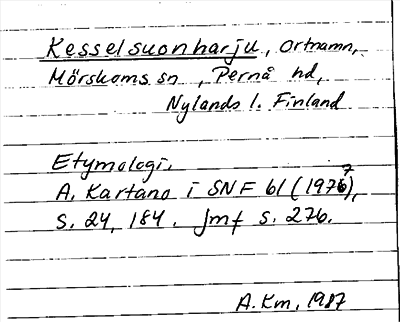 Kesselsuonharju, Ortnamn,
Mörskoms sn, Pernå hd,
Nylands l. Finland
Etymologi.
A. Kartano i SNF 61 (1977),
s. 24, 184. Jmf s. 276.
A.Km, 1987